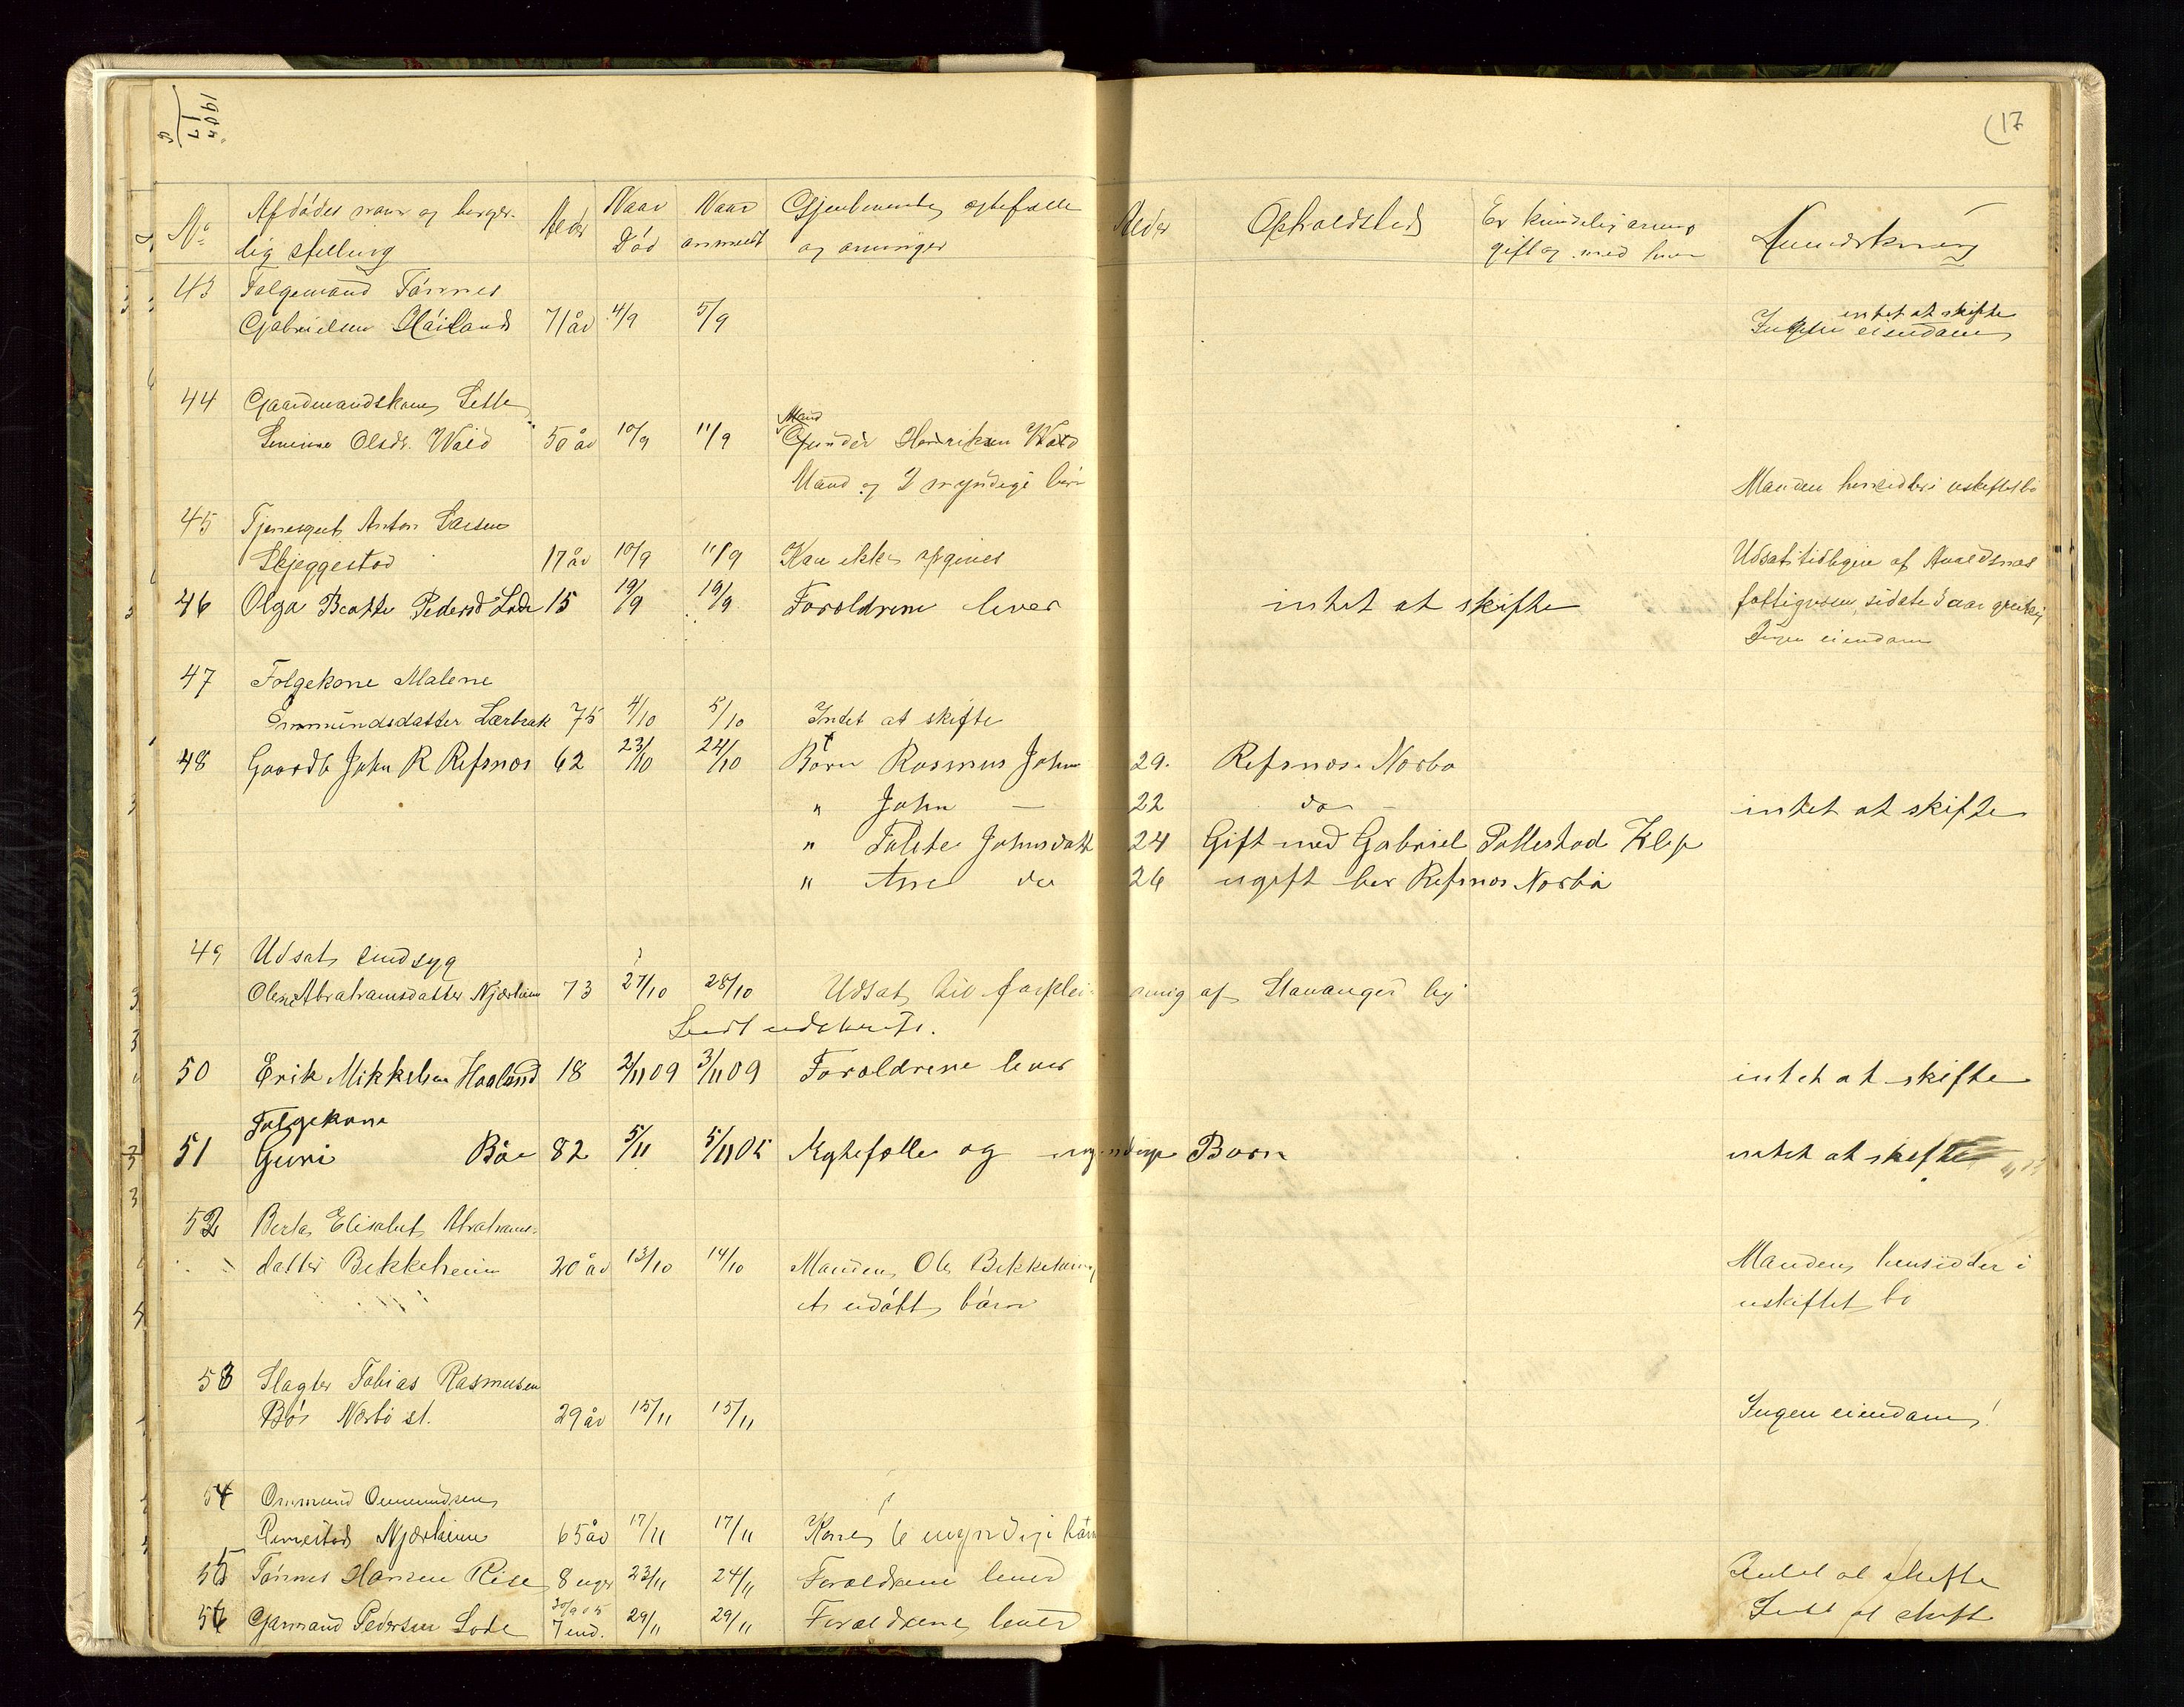 (17
No Afdødes navn og borger- Alder Naar Naar Gjenlevende ægtefælle Alder Opholdsted Er kvindelig arving Anmerkning
lig stilling Død anmeldt og arvinger gift og med hvem
43 Følgemand Tønnes
Gabrielsen Høiland 71 år 4/9 5/9 Ingen eiendom intet at skifte
44 Gaardmandskone Sille
Severine Olsdr. Wold 50 år 10/9 11/9 Mand Gunder Henriksen Wold
Mand og 2 myndige børn Manden hensidder i uskiftet bo
45 Tjenesgut Anton Larsen
Skjeggestad 17 år 10/9 11/9 Kan ikke opgives Udsat tidligere af Avaldsnes
46 Olga Beatte Pedersd Lode 15 19/9 19/9 Foroldrene lever intet at skifte fattigvæsen, sidste
Ingen eiendom
47 Følgekone Malene
Ommundsdatter Lærbrak 75 4/10 5/10 Intet at skifte
48 Gaardb John R Refsnes 62 23/10 24/10 Børn Rasmus John 29. Refsnes. Nærbø
" John — 22 do — intet at skifte
" Tolete Johnsdatt 24 Gift med Gabriel Pollestad Klep
" Ane do 26 ugift her Refsnes Nærbø
49 Udsat sindsyg
Olene Abrahamsdatter Njærheim 73 27/10 28/10 Udsat til forpleining af Stavanger by
Sendt udskrift.
50 Erik Mikkelsen Haaland 18 2/11 09 3/11 09 Foroldrene lever intet at skifte
Følgekone
51 Guri Bøe 82 5/11 5/11 05 Ægtefælle og myndige Børn intet at skifte
52 Berta Elisabet Abrahams-
datter Bekkeheim 20 år 13/10 14/10 Manden Ole Bekkeheim Manden hensidder i
et udøbt barn uskiftet bo
53 Slagter Tobias Rasmusen
Bø Nærbø st. 29 år 15/11 15/11 Ingen eiendom!
54 Ommund Ommundsen
Njærheim 65 år 17/11 17/11 Kone 6 umyndige børn
55 Tønnes Hansen Rise 8 uger 23/11 24/11 Foroldrene lever Intet at skifte
56 Garmand Pedersen Lode 30/9 05 7 und. 29/11 29/11 Foroldrene lever Intet at skifte